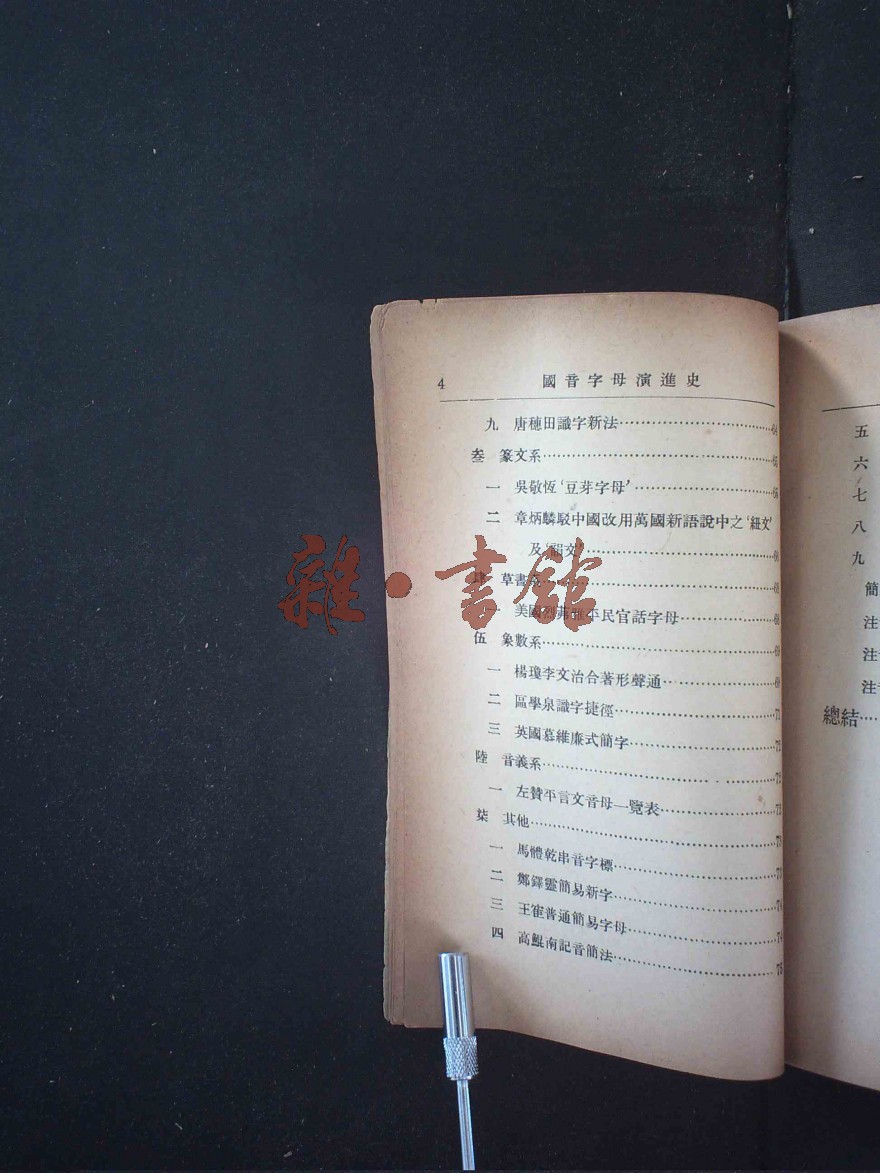 4 國音字母演進史
九 唐穗田識字新法……64
叁 篆文系……
一 吳敬恆‘豆芽字母’……
二 章炳麟駁中國改用萬國新語說中之‘紐文’
及‘韻文’……
肆 草書系……
一 美國烈 平民官話字母……
伍 象數系……
一 楊瓊李文治合著形聲通……
二 區學泉識字捷徑……71
三 英國慕維廉式簡字……
陸 音義系……72
一 左贊平言文音母一覽表……73
柒 其他……
一 馬體乾串音字標……73
二 鄭鐸靈簡易新字……74
三 王崔普通簡易字母……74
四 高鯤南記音簡法……75
五
六
七
八
九
簡
注
注
注
總結……
雜·書館